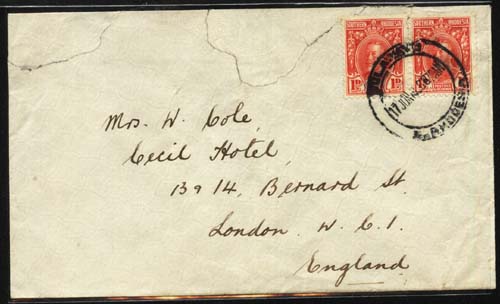 SOUTHERN RHODESIA SOUTHERN RHODESIA
1D 1D 1D
BULAWAYO
17 JUN
RHODESIA
Mrs. W. Cole,
Cecil Hotel,
13 & 14, Bernard St.
London. W. C. 1.
England.